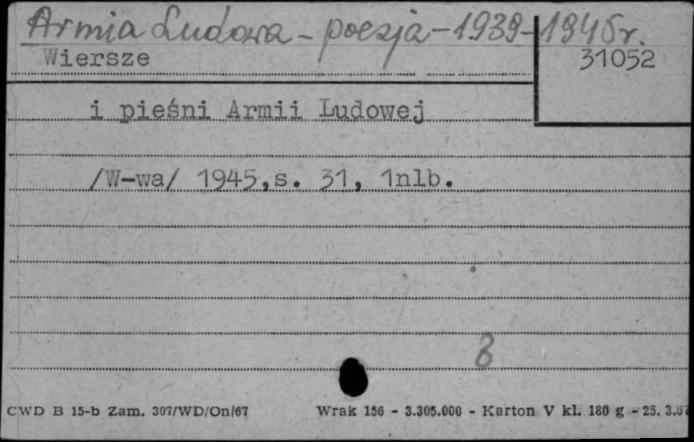 Armia Ludowa - poezja - 1939-1945r.
Wiersze 31052
i pieśni Armii Ludowej
/W-wa/ 1945,s. 31, 1nlb.
8
CWD B 15-b Zam. 307/WD/On/67 Wrak 156 - 3.305.000 - Karton V kl. 180 g - 25. 3.67